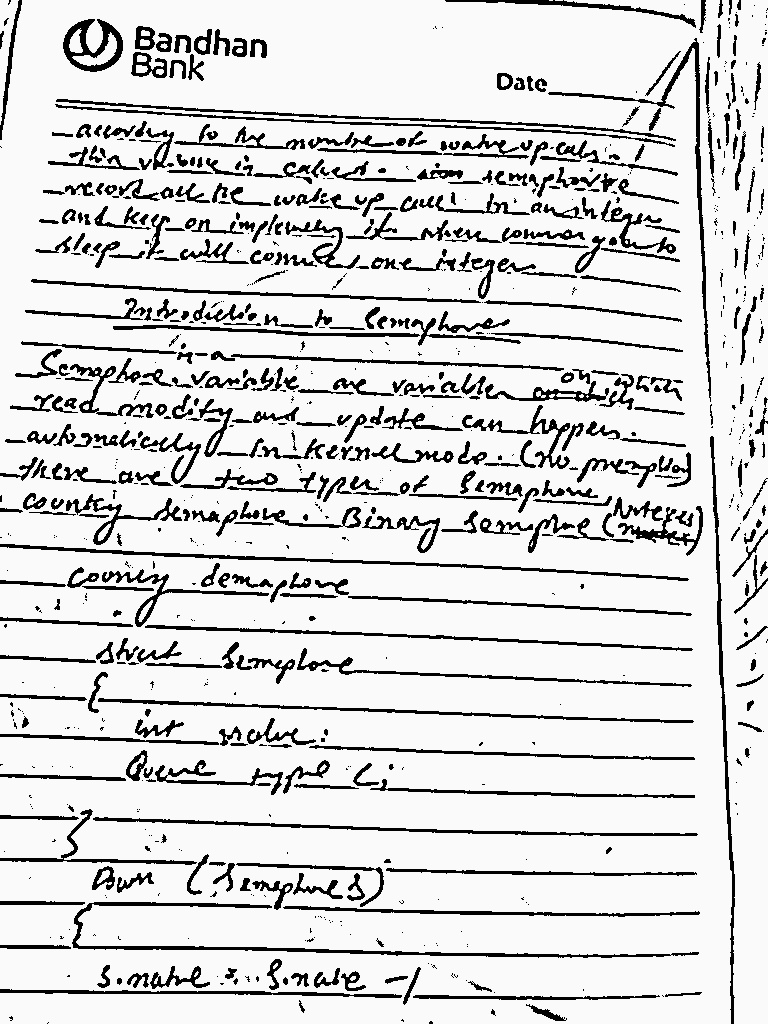 Bandhan
Bank
Date
according to the number of wake up calls.
this variable is called. semaphore
record all the wake up calls in an integer
and keep on implementing it when consumer goes to
sleep it will consume one integer
Introduction to Semaphores
in a
Semaphore. variable are variables on which on which
read modify and update can happen.
automatically in kernel mode. (no premption)
there are two types of Semaphore,
county Semaphore. Binary Semaphore (Mutexes)
county demaphore
struct Semaphore
{
int value:
Queue type L;
}
Down (Semaphore S)
{
S.value = S.value -1